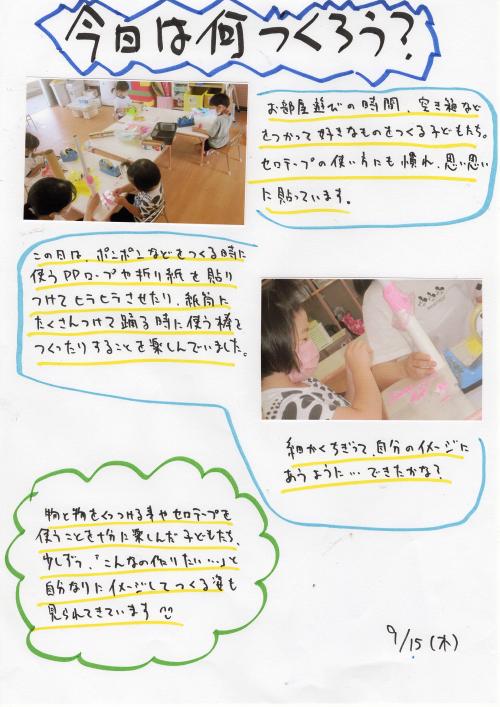 今日は何つくろう？
お部屋遊びの時間、空き箱など
をつかって好きなものをつくる子どもたち。
セロテープの使い方にも慣れ、思い思い
に貼っています。
この日は、ポンポンなどをつくる時に
使うPPロープや折り紙を貼り
つけてヒラヒラさせたり、紙筒に
たくさんつけて踊る時に使う棒を
つくったりすることを楽しんでいました。
細かくちぎって、自分のイメージに
あうように…できたかな？
物と物をくっつける事やセロテープを
使うことを十分に楽しんだ子どもたち、
少しずつ、「こんなの作りたい…」と
自分なりにイメージしてつくる姿も
見られてきています
9/15(木)